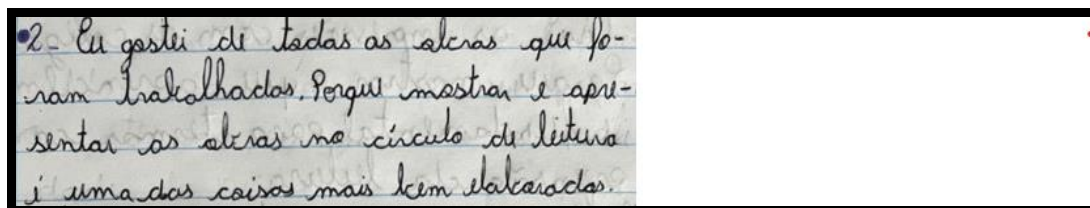 2- Eu gostei de todas as obras que fo-
ram trabalhadas. Porque mostrar e apre-
sentar as obras no círculo de leitura
é uma das coisas mais bem elaboradas.